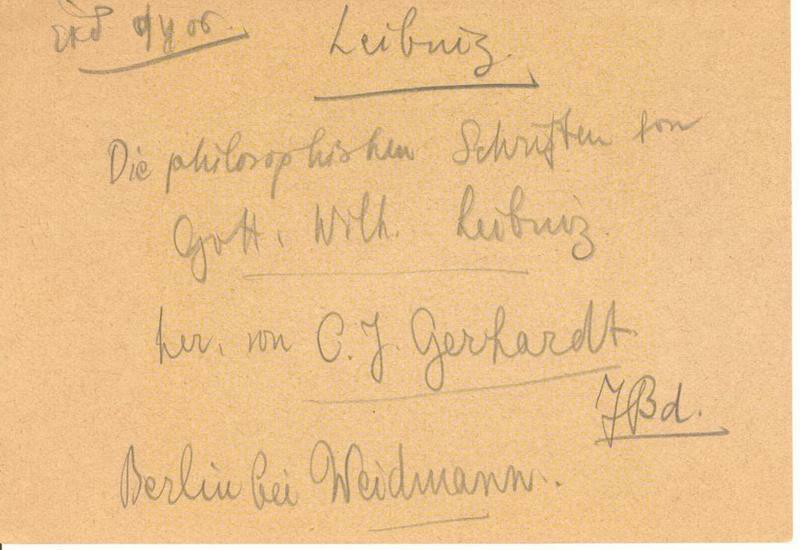 Leibniz.
Die philosophischen Schriften von
Gott. Wilh. Leibniz.
her. von C. J. Gerhardt
Bd.
Berlin bei Weidmann.